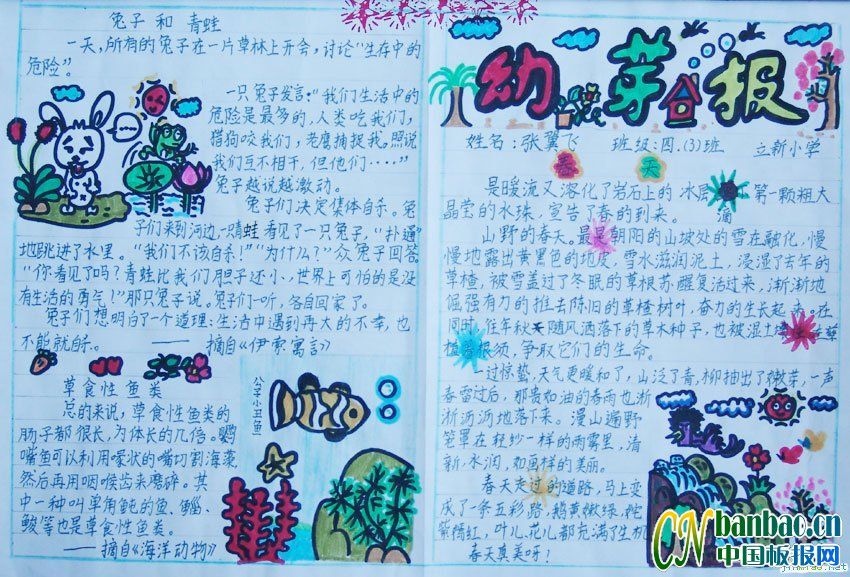 兔子和青蛙
一天,所有的兔子在一片草林上开会,讨论“生存中的
危险”。
一只兔子发言:“我们生活中的
危险是最多的,人类吃我们,
猎狗咬我们,老鹰捕捉我。照说
我们互不相干,但他们····”
兔子越说越激动。
兔子们决定集体自杀。兔
子们来到河边,一只青蛙看见了一只兔子,“扑通”
地跳进了水里。“我们不该自杀!”“为什么?”众兔子回答
“你看见了吗?青蛙比我们胆子还小,世界上可怕的是没
有生活的勇气!”那只兔子说。兔子们一听,各自回家了。
兔子们想明白了一个道理:生活中遇到再大的不幸,也
不能就杀。——摘自《伊索寓言》
草食性鱼类
总的来说,草食性鱼类的
肠子都很长,为体长的几倍。鹦
嘴鱼可以利用喙状的嘴切割海藻,
然后再用咽喉齿来磨碎。其
中一种叫单角鲀的鱼、鲻、
鲅等也是草食性鱼类。
——摘自《海洋动物》
公子小丑鱼
幼芽报
姓名:张翼飞 班级:四.(3)班 立新小学
春天
是暖流又溶化了岩石上的冰层 第一颗粗大
晶莹的水珠,宣告了春的到来。
滴
山野的春天。最 朝阳的山坡处的雪在融化,慢
慢地露出黄黑色的地皮,雪水滋润泥土,浸湿了去年的
草楂,被雪盖过了冬眠的草根苏醒复活过来,渐渐地
倔强有力的推去陈旧的草楂树叶,奋力的生长起来。在
同时,往年秋天随风洒落下的草木种子,也被湿土 孽
植 根须,争取它们的生命。
一过惊蛰,天气更暖和了,山泛了青,柳抽出了嫩芽,一声
春雷过后,那贵如油的春雨也淅
淅沥沥地落下来。漫山遍野
笼罩在轻纱一样的雨雾里,清
新,水润,如画样的美丽。
春天走过的道路,马上变
成了一条五彩路,鹅黄嫩绿,姹
紫嫣红,叶儿、花儿都充满了生机
春天真美呀!
CN banbao.cn
中国板报网